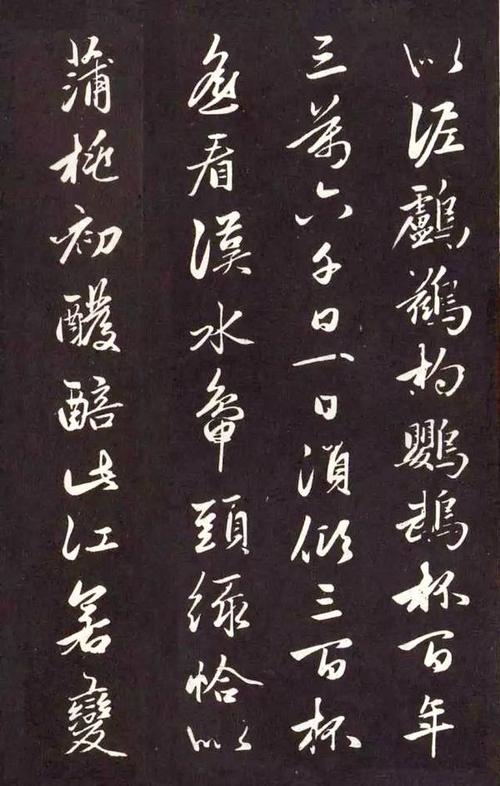 似泥鸕鶿杓鸚鵡杯百年
三萬六千日一日須傾三百杯
遙看漢水鴨頭綠恰似
蒲桃初醱醅此江若變